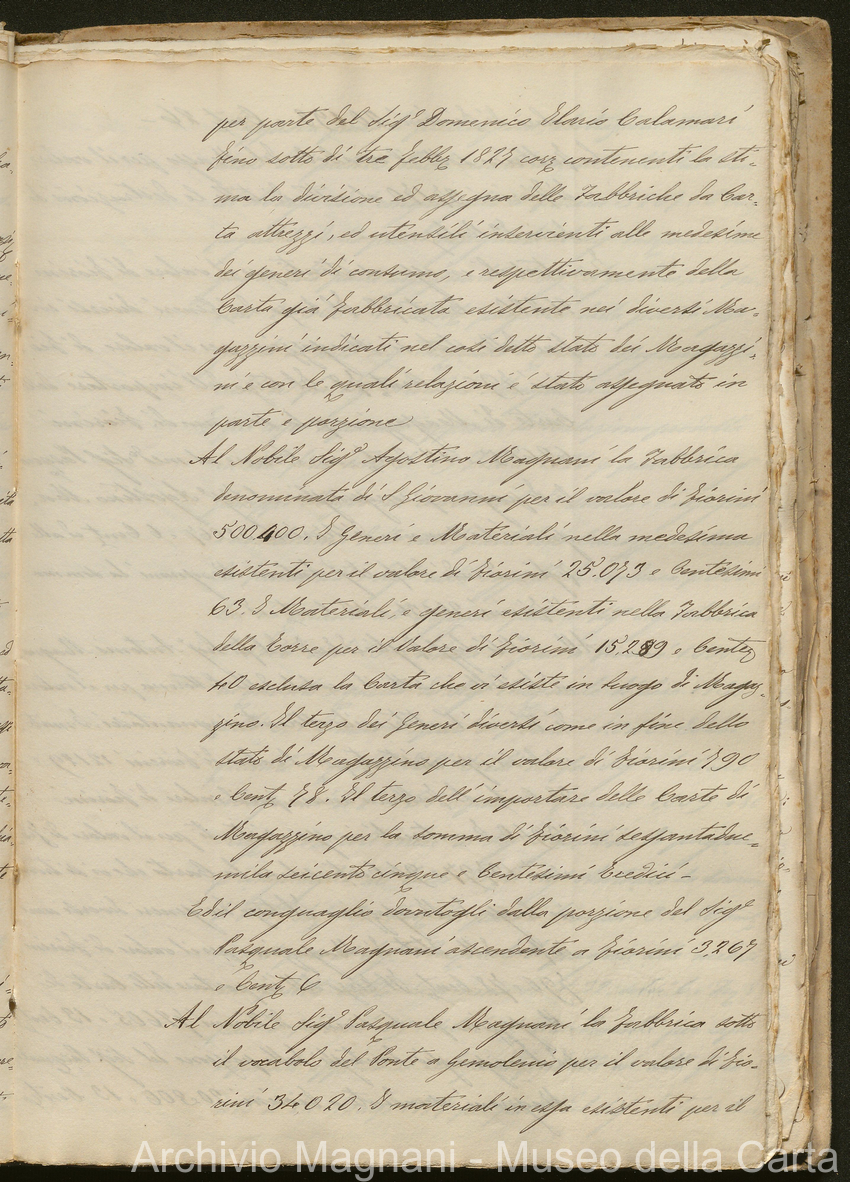 per parte del Sigr Domenico Ilario Calamari
fino sotto dì tre Febbr 1827 corr contenenti la sti-
ma la divisione ed assegna delle Fabbriche da Car-
ta attrezzi, ed utensili inservienti alle medesime
dei generi di consumo, e respettivamente della
Carta già fabbricata esistente nei diversi Ma-
gazzini indicati nel così detto stato dei Magazzi-
ni e con le quali relazioni è stato assegnato in
parte e porzione
Al Nobile Sigr Agostino Magnani la Fabbrica
denominata di S Giovanni per il valore di Fiorini
I Generi e Materiali nella medesima
esistenti per il valore di Fiorini 25.073 e Centesimi
63. I Materiali, e generi esistenti nella Fabbrica
della Torre per il Valore di Fiorini e Centes
40 esclusa la Carta che vi esiste in luogo di Magaz-
zino. Il terzo dei Generi diversi come in fine dello
stato di Magazzino per il valore di Fiorini 790
e Cent 78. Il terzo dell'importare delle Carte di
Magazzino per la somma di Fiorini sessantadue-
mila seicento cinque e Centesimi tredici -
Ed il conguaglio dovutogli dalla porzione del Sigr
Pasquale Magnani ascendente a Fiorini 3,267
e Cent 6
Al Nobile Sigr Pasquale Magnani la Fabbrica sotto
il vocabolo del Ponte a per il valore di Fio-
rini 34020. I materiali in essa esistenti per il
Archivio Magnani - Museo della Carta